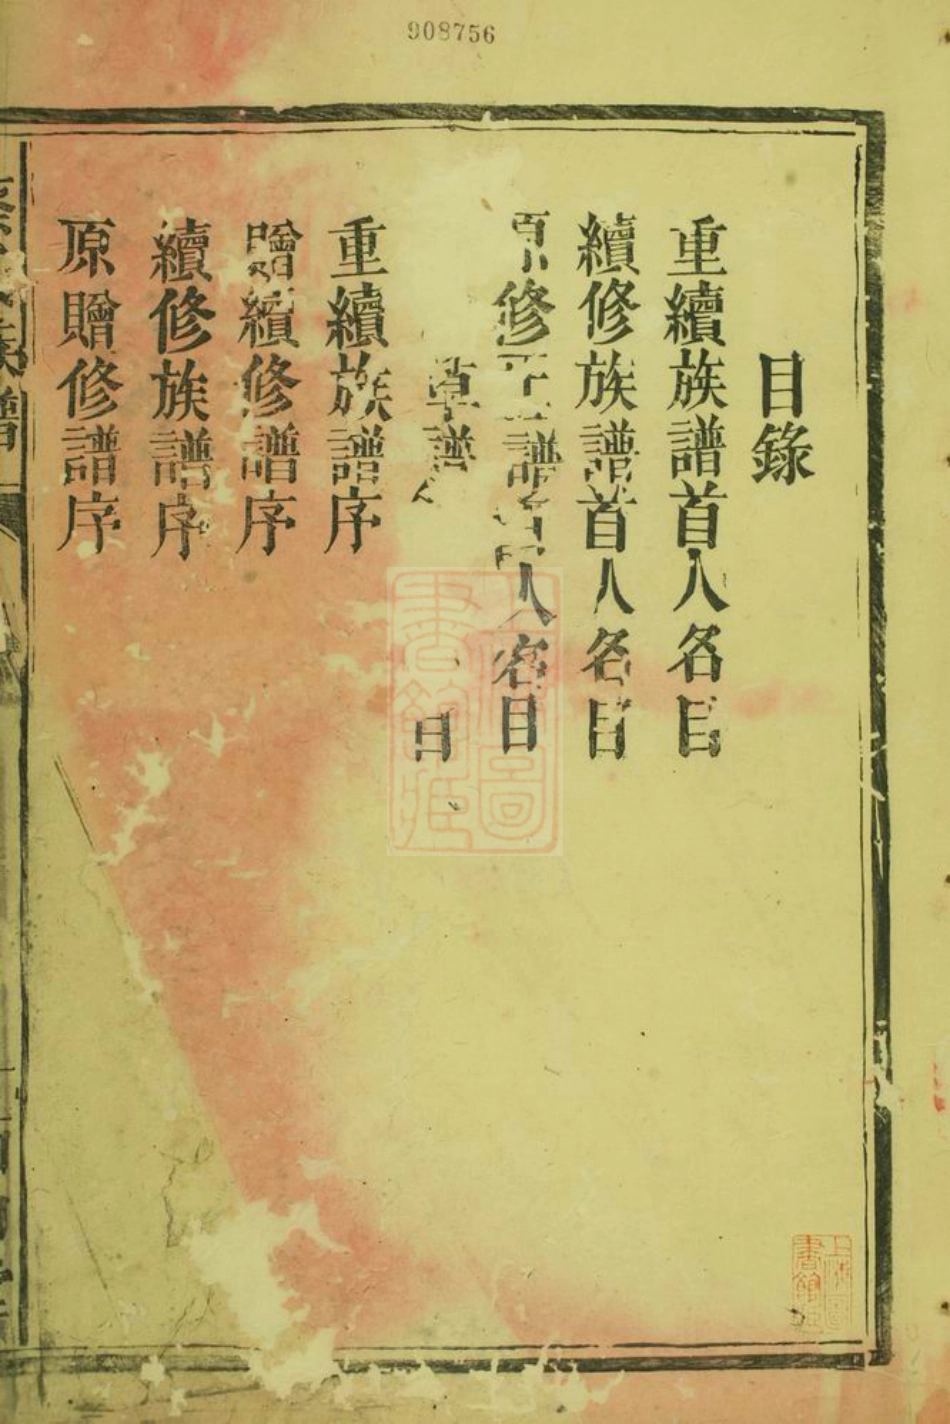 908756
目錄
重續族譜首人名目
續修族譜首人名目
原修正譜首人名目
草譜 目
重續族譜序
贈續修譜序
續修族譜序
原贈修譜序
上海圖書館藏